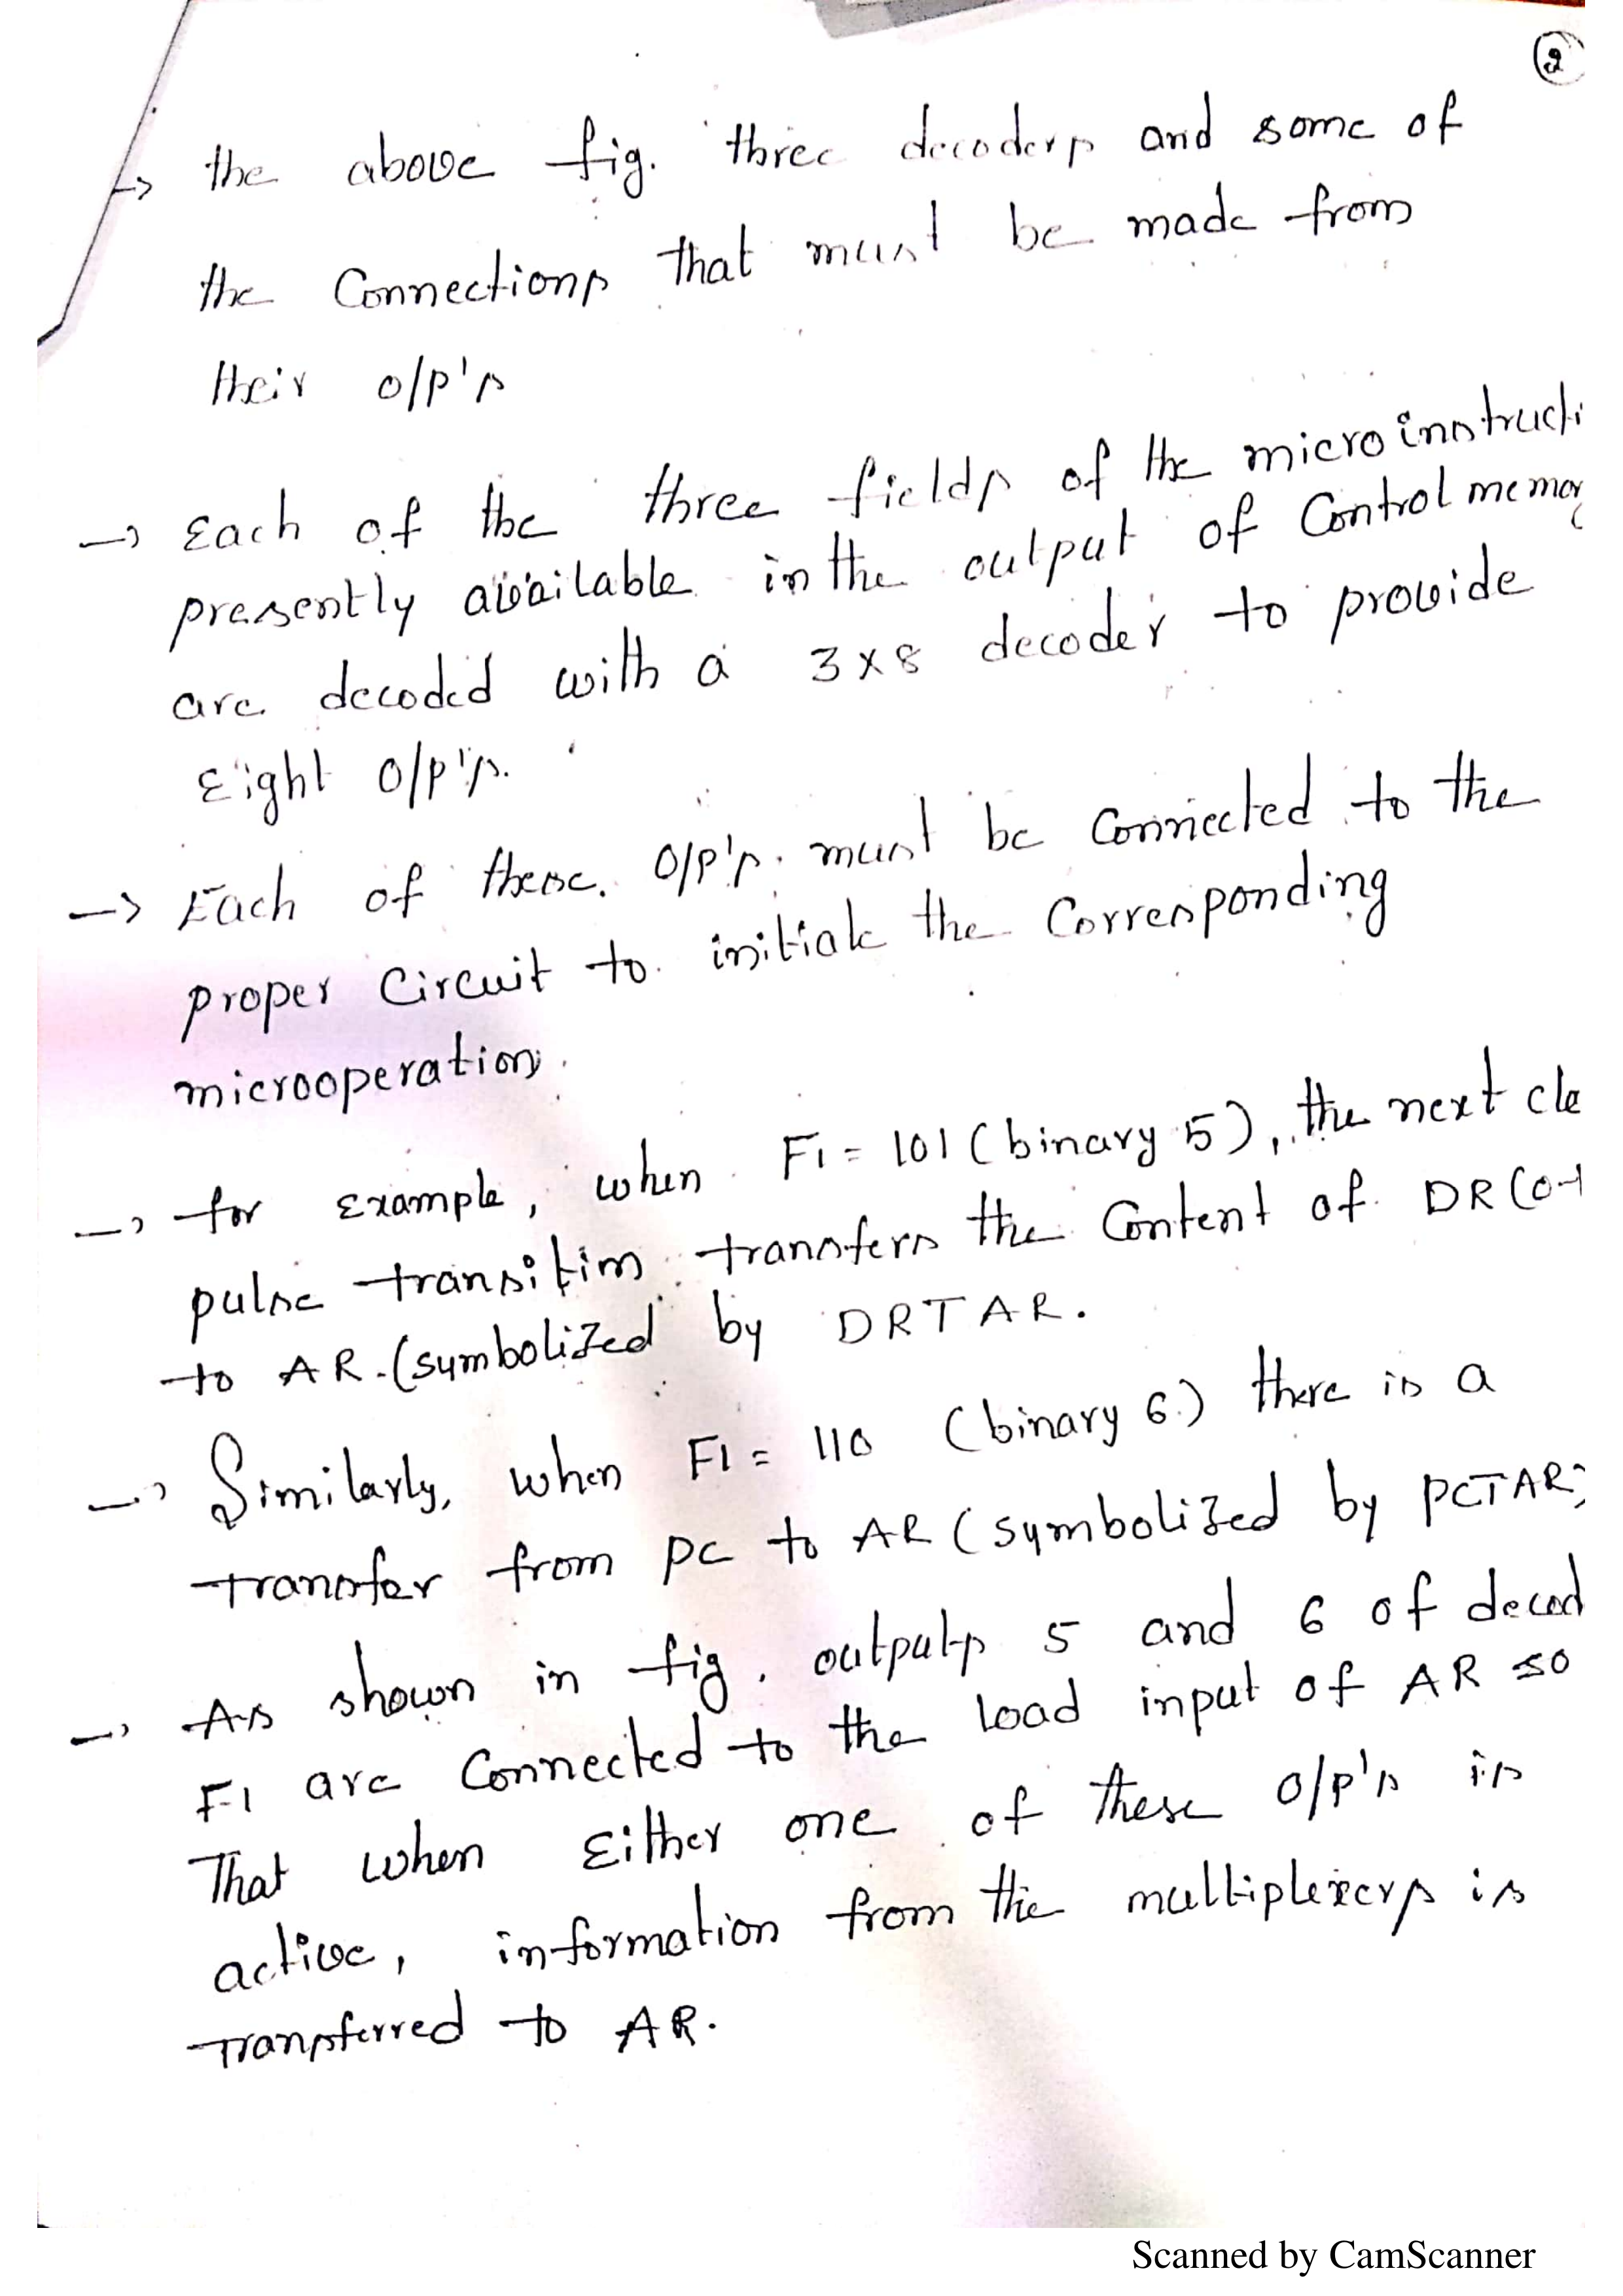 2
→ the above fig. three decoders and some of
the Connections that must be made from
their o/p's
→ Each of the three fields of the microinstructi
presently available in the output of Control memor
are decoded with a 3x8 decoder to provide
Eight o/p's.
→ Each of these o/p's must be connected to the
proper Circuit to initiate the Corresponding
microoperation.
→ for Example, when F1 = 101 (binary 5), the next clo
pulse transition transfers the Content of DR(0-1
to AR. (symbolized by DRTAR.
→ Similarly, when F1 = 110 (binary 6) there is a
transfer from PC to AR (symbolized by PCTAR)
→ As shown in fig. outputs 5 and 6 of decod
F1 are Connected to the load input of AR so
That when Either one of these o/p's is
active, information from the multiplexers is
Transferred to AR.
Scanned by CamScanner